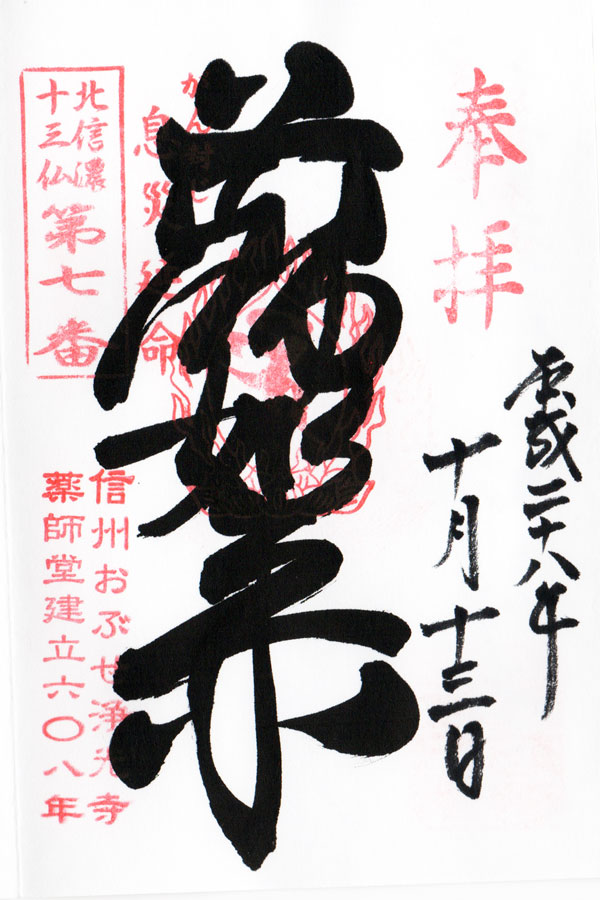 奉拝
平成二十八年
十月十三日
薬師如来
がん封じ
息災延命
北信濃
十三仏
第七番
信州おぶせ浄光寺
薬師堂建立六〇八年